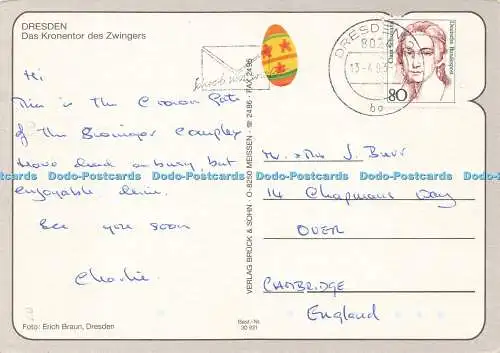 DRESDEN
Das Kronentor des Zwingers
Hi
This is the Crown Gate
of the Zwinger Complex
Have had a busy, but
enjoyable time.
See you soon
Charlie.
Foto: Erich Braun, Dresden
VERLAG BRÜCK & SOHN · O-8250 MEISSEN · ☎ 2486 · FAX 2495
Best.-Nr.
30 931
DRESDEN
80
bo
Clara Schumann
Deutsche Bundespost
80
Mr. & Mrs J. Burr
14 Chapmans Way
OVER
CAMBRIDGE
England
Dodo-Postcards Dodo-Postcards Dodo-Postcards
Dodo-Postcards Dodo-Postcards Dodo-Postcards